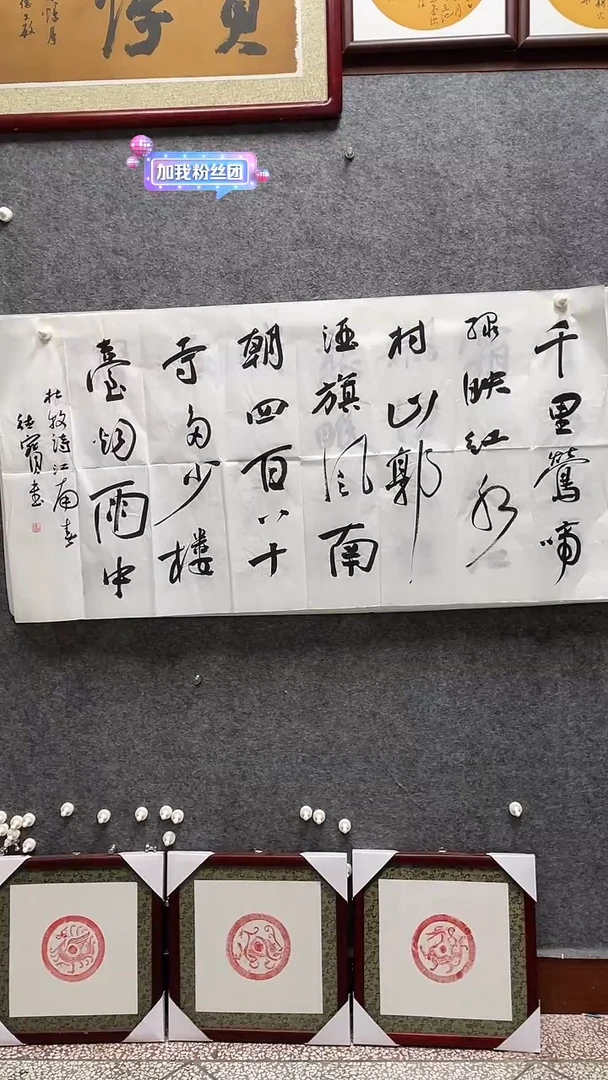 加我粉丝团
千里鶯啼
绿映红水
村山郭
酒旗风南
朝四百八十
寺多少楼
臺烟雨中
杜牧诗江南春